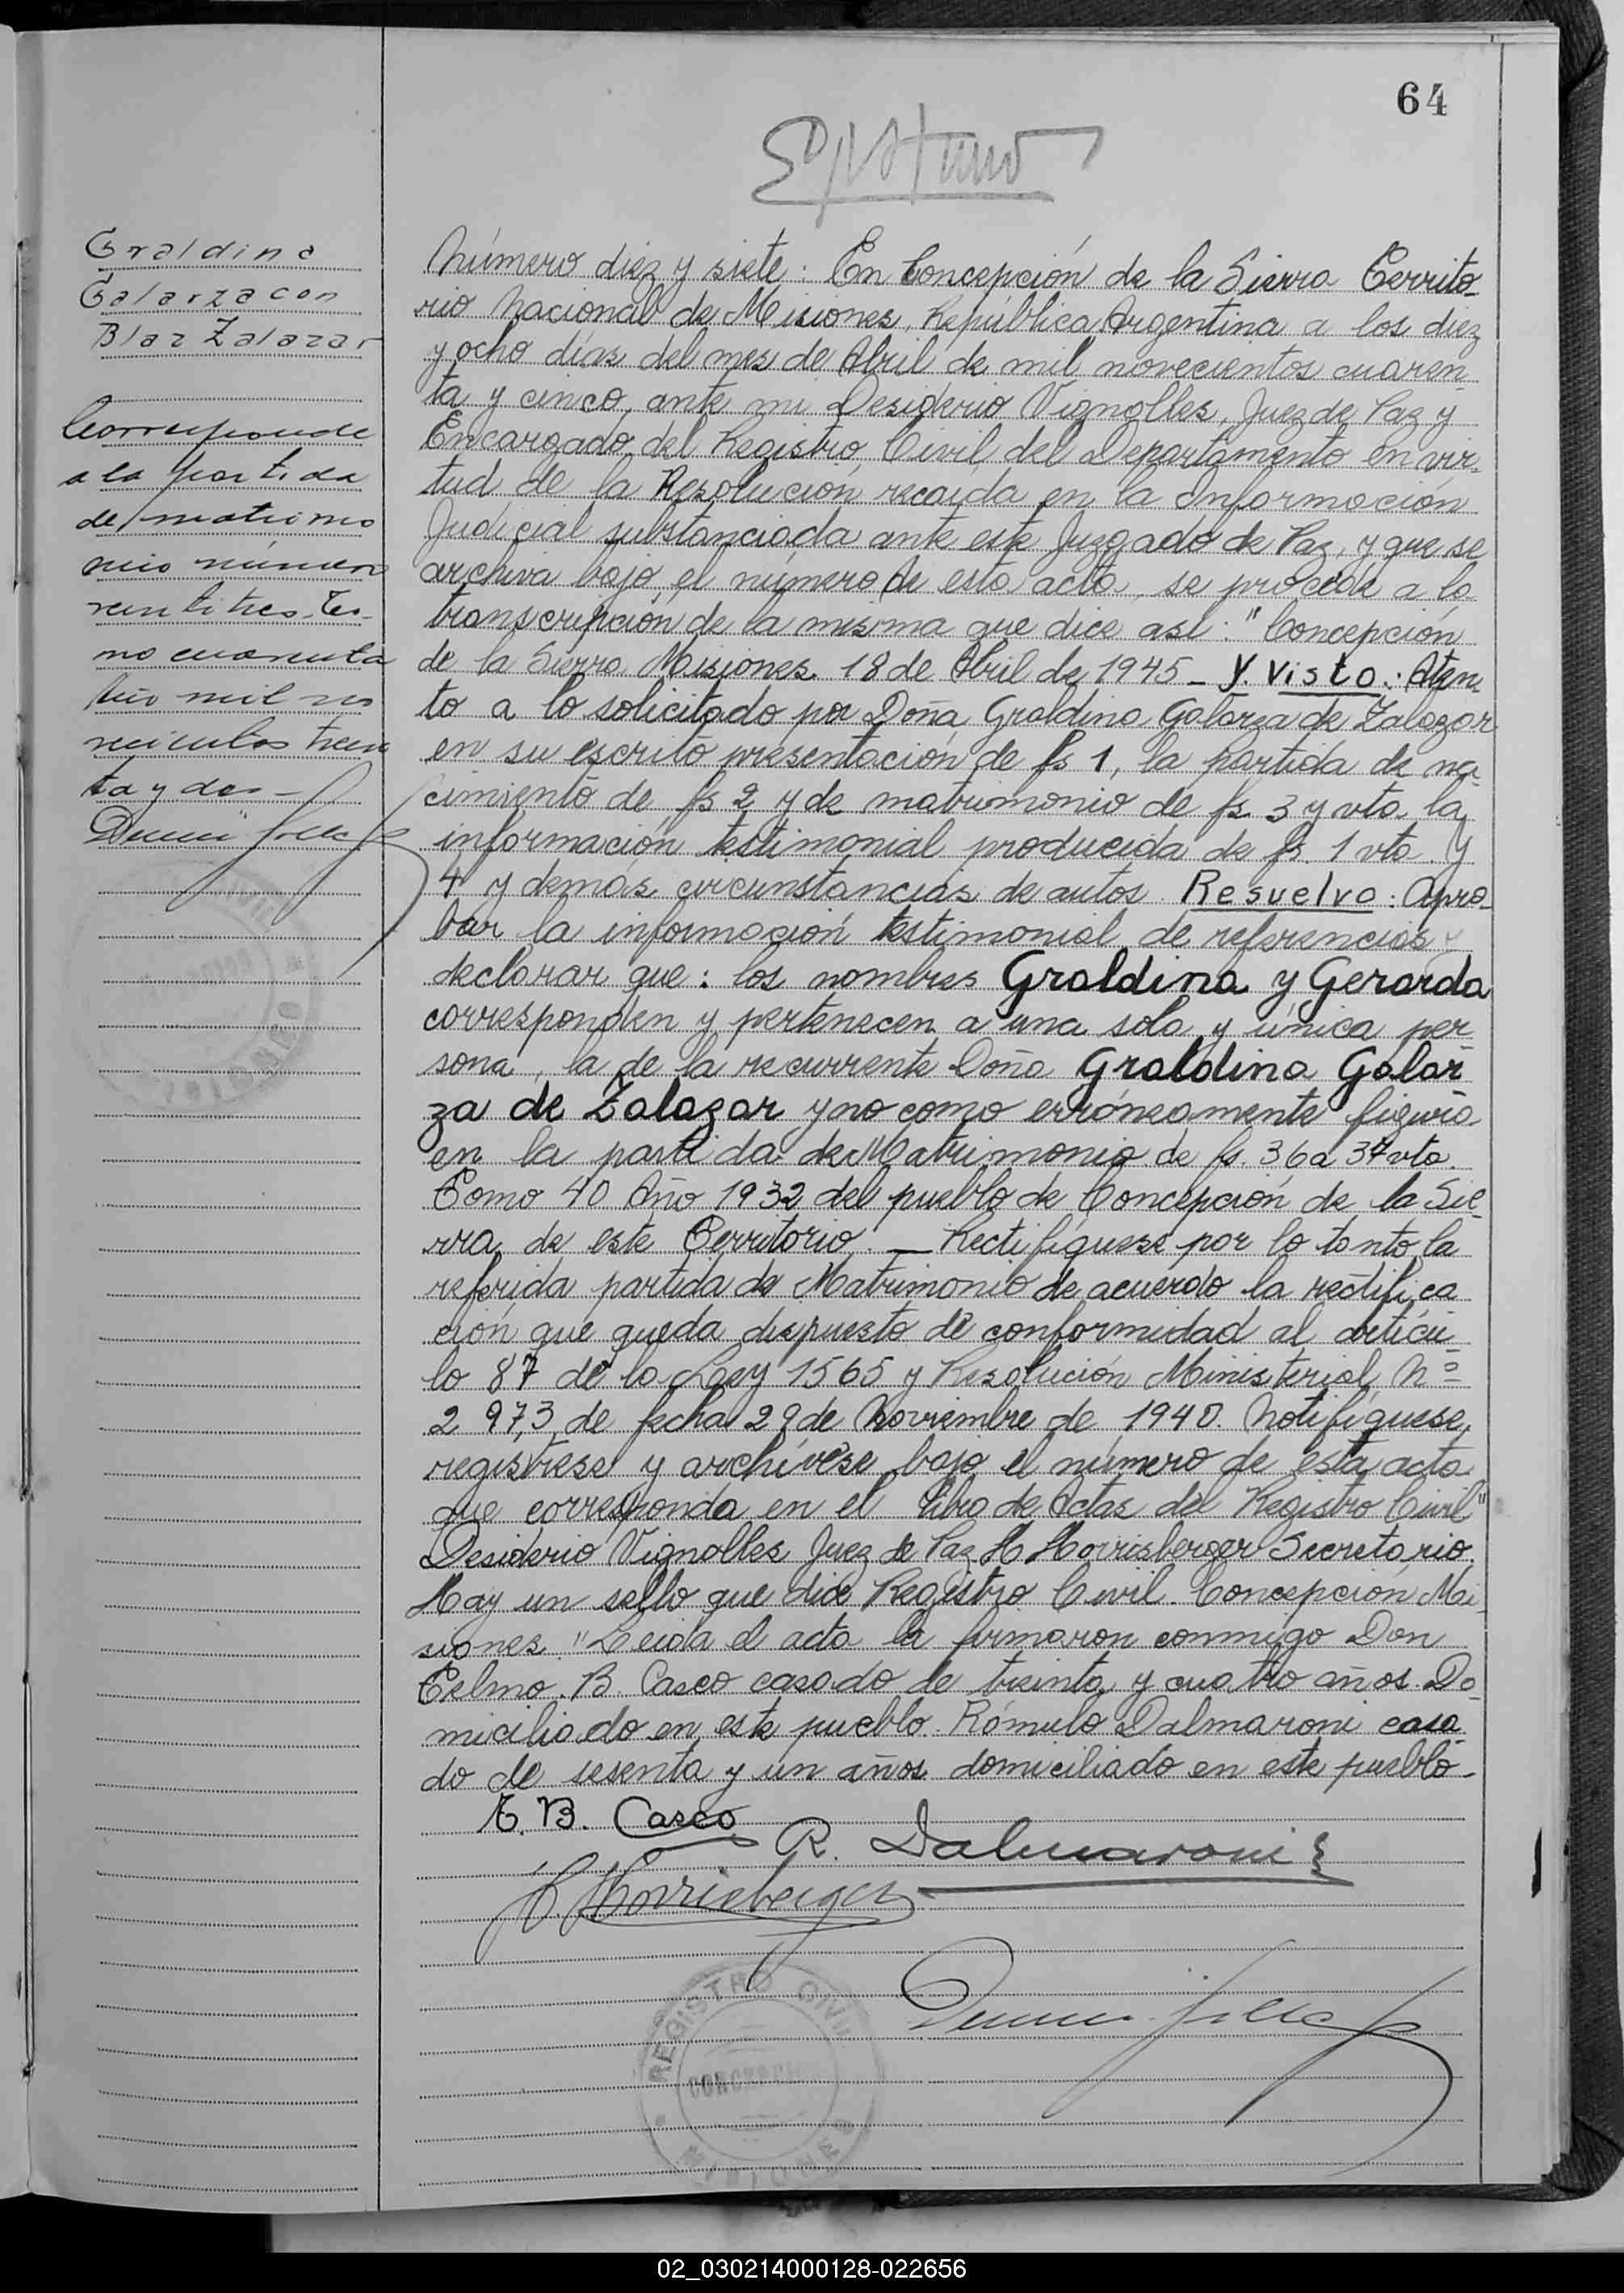 64
Graldina
Galarza con
Blaz Zalazar
Corresponde
a la partida
de matrimo
nio número
veintitres. To-
mo cuarenta
Año mil no
vecientos trein
ta y dos -
Número diez y siete: En Concepción de la Sierra Territo-
rio Nacional de Misiones, República Argentina a los diez
y ocho días del mes de Abril de mil novecientos cuaren-
ta y cinco, ante mi Desiderio Vignolles, Juez de Paz y
Encargado del Registro Civil del Departamento en vir-
tud de la Resolución recaída en la Información
Judicial substanciada ante este Juzgado de Paz, y que se
archiva bajo el número de esta acta, se procede a la
transcripción de la misma que dice así: "Concepción
de la Sierra Misiones 18 de Abril de 1945 - Y. Visto: Aten
to a lo solicitado por Doña Graldina Galarza de Zalazar
en su escrito presentación de fs 1, la partida de na-
cimiento de fs 2 y de matrimonio de fs. 3 y vta. la
información testimonial producida de fs. 1 vta. y
4 y demás circunstancias de autos Resuelvo: Apro-
bar la información testimonial de referencias y
declarar que: los nombres Graldina y Gerarda
corresponden y pertenecen a una sola y única per
sona, la de la recurrente Doña Graldina Galar
za de Zalazar y no como erróneamente figura
en la partida de Matrimonio de fs. 36 a 37 vta.
Tomo 40 Año 1932 del pueblo de Concepción de la Sie
rra de este Territorio. - Rectifíquese por lo tanto la
referida partida de Matrimonio de acuerdo la rectifica
ción que queda dispuesto de conformidad al artícu
lo 87 de la Ley 1565 y Resolución Ministerial Nº
2 973 de fecha 29 de Noviembre de 1940. Notifíquese,
regístrese y archívese bajo el número de esta acta
que corresponda en el libro de Actas del Registro Civil"
Desiderio Vignolles Juez de Paz H Horrisberger Secretario.
Hay un sello que dice Registro Civil. Concepción Mi-
siones. "Leida el acta la firmaron conmigo Don
Telmo. B. Casco casado de treinta y cuatro años. Do
miciliado en este pueblo. Rómulo Dalmaroni casa
do de sesenta y un años domiciliado en este pueblo-
T. B. Casco
R. Dalmaroni
H. Horrisberger
REGISTRO CIVIL
CONCEPCION
MISIONES
02_030214000128-022656